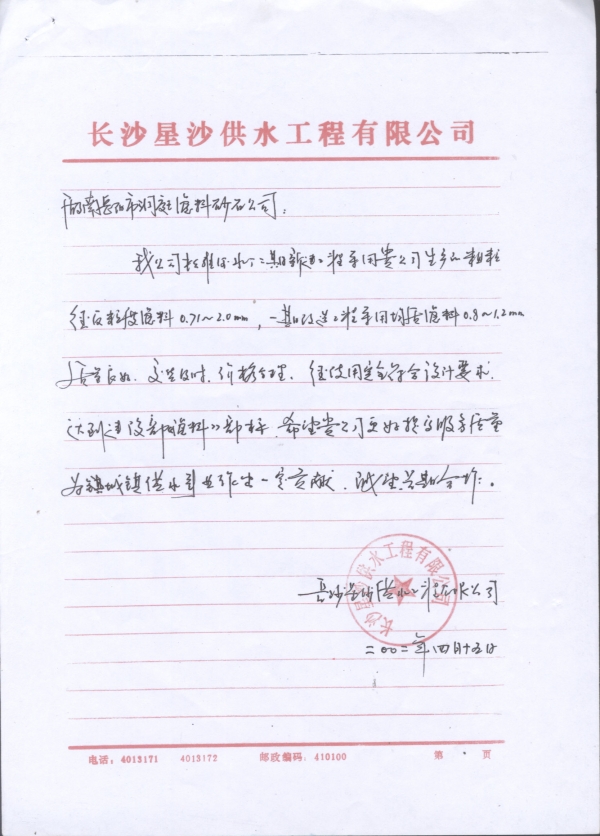 长沙星沙供水工程有限公司
湖南岳阳市洞庭滤料砂石公司：
我公司在 水 二期新建工程采用贵公司生产的粗粒
径反粒度滤料0.71～2.0mm，一期改造工程采用均质滤料0.8～1.2mm
质量良好、交货及时、价格合理、经使用完全符合设计要求，
达到建设部《滤料》部标，希望贵公司更好提高服务质量
为 城镇供水事业作出一定贡献，诚望长期合作。
长沙星沙供水工程有限公司
长沙星沙供水工程有限公司
二00二年四月十五日
电话：4013171 4013172 邮政编码：410100 第 页